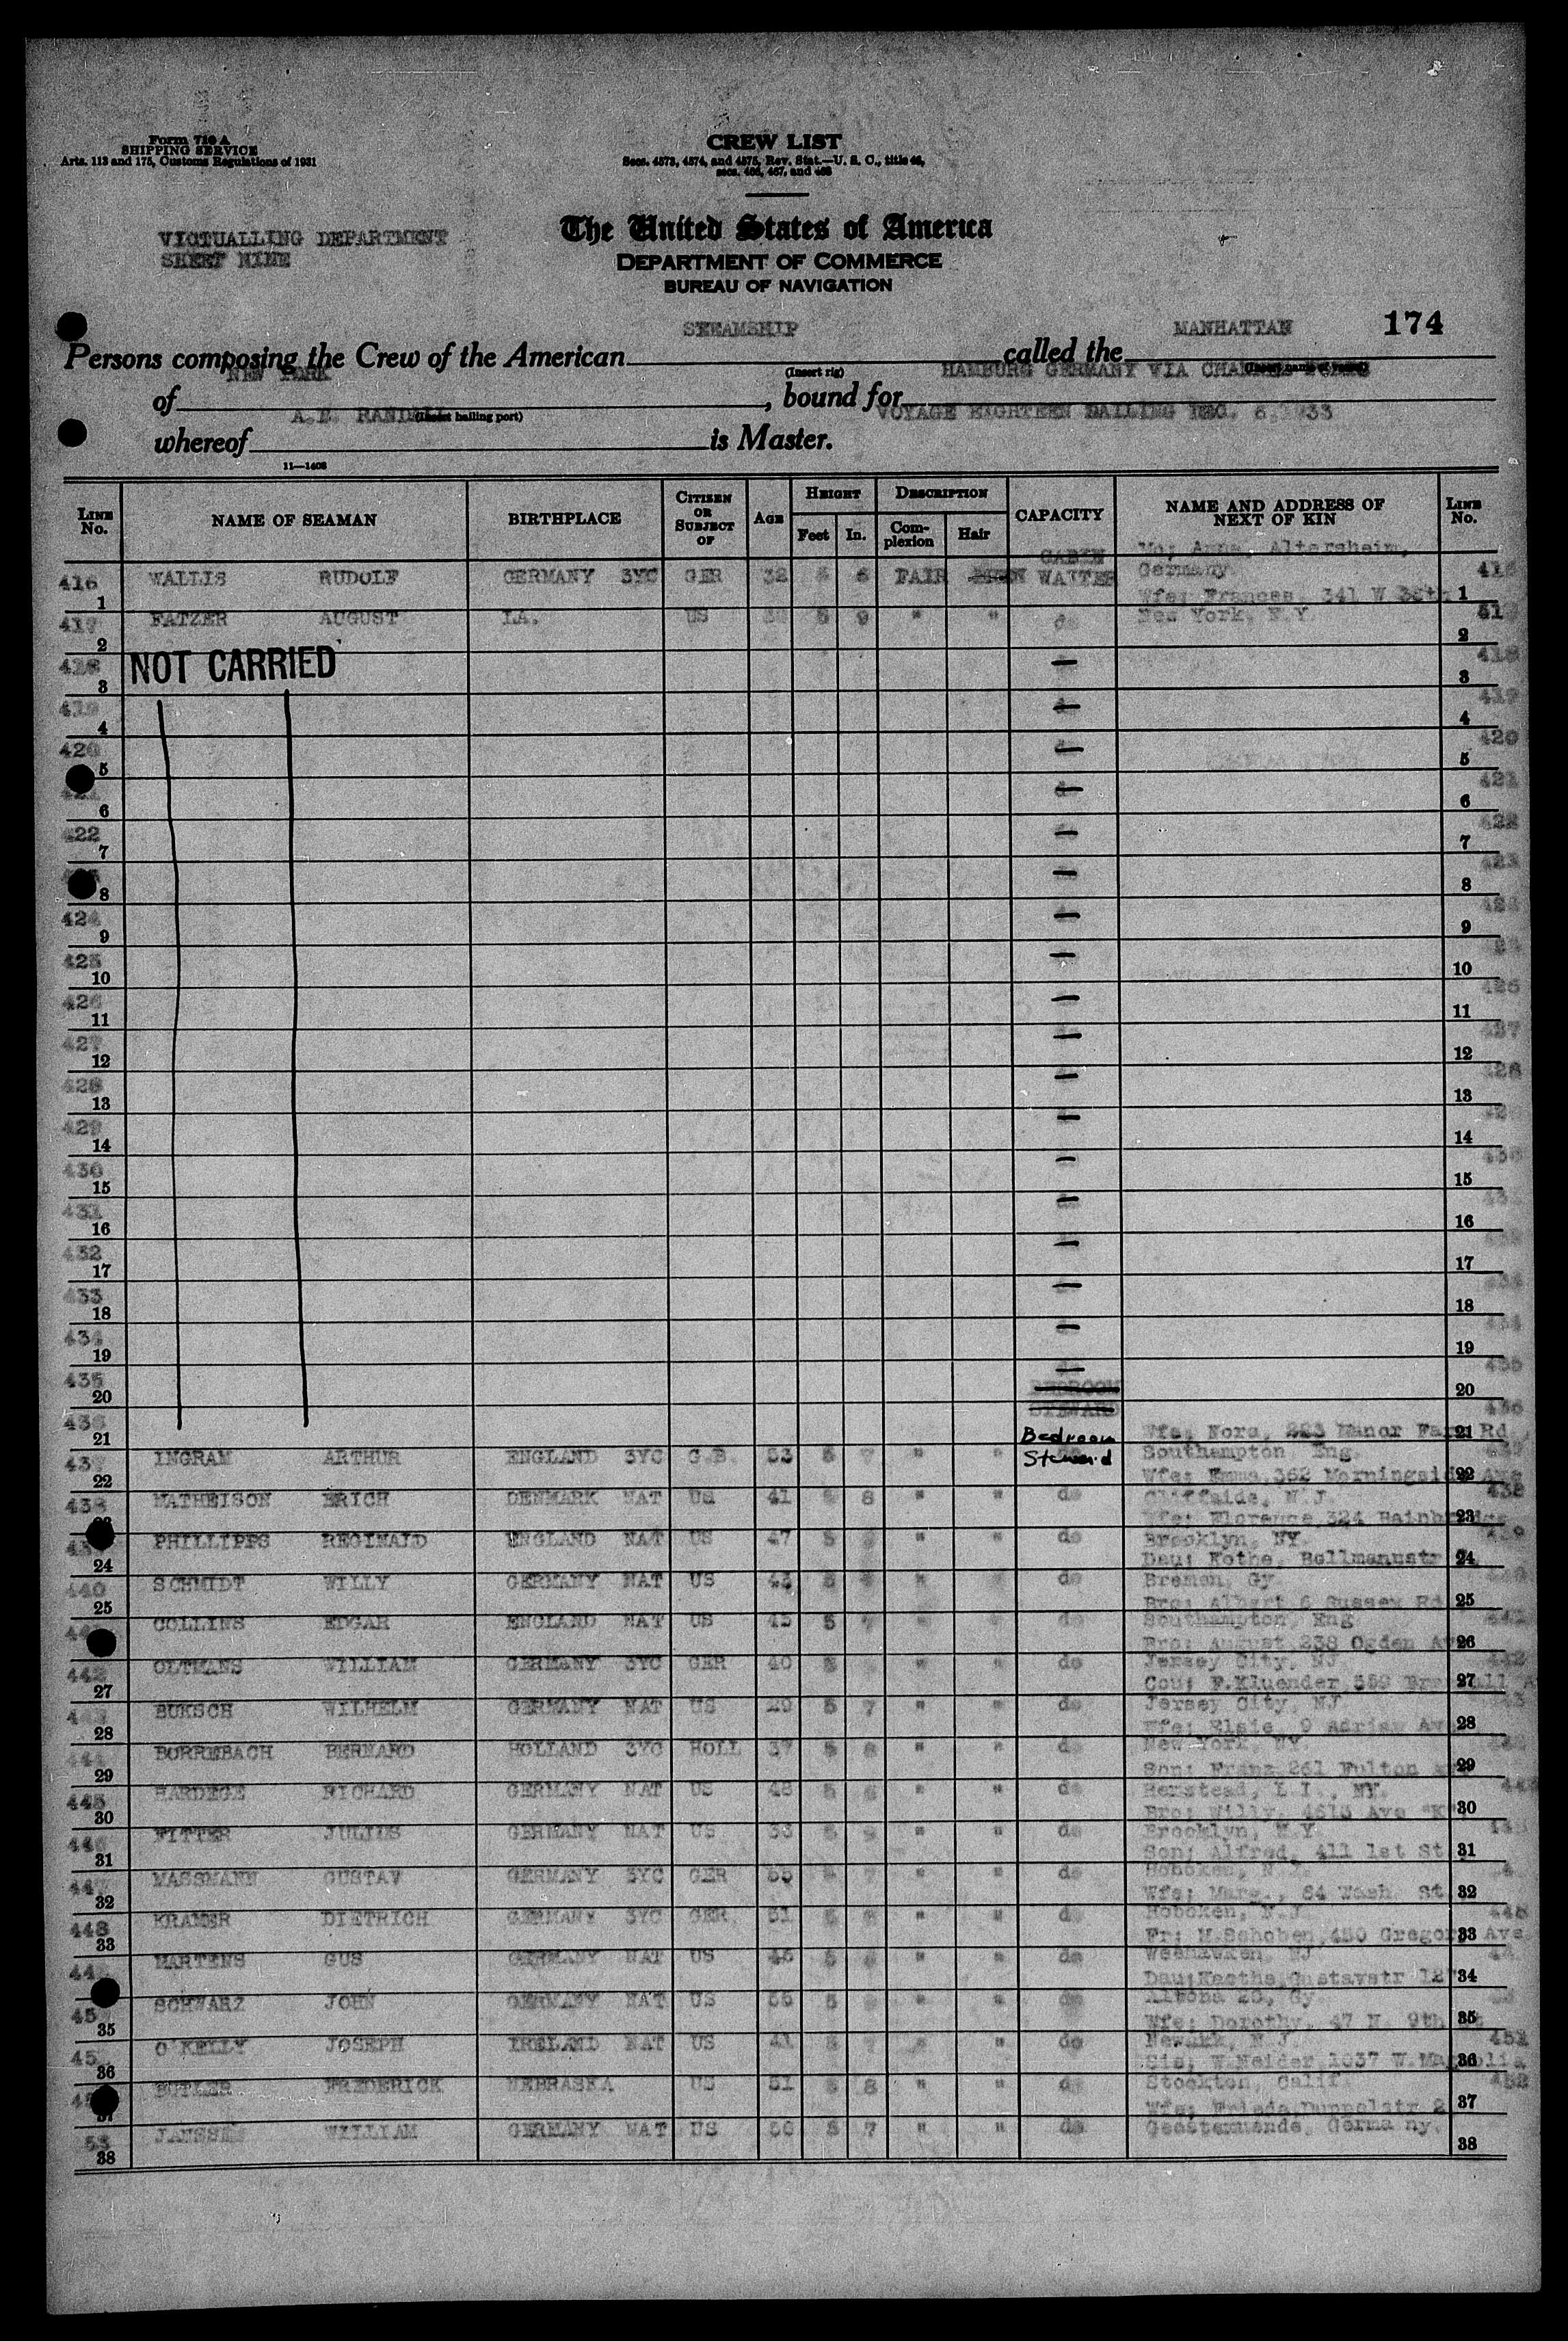 Form 710 A
SHIPPING SERVICE
Arts. 113 and 175, Customs Regulations of 1931
CREW LIST
Secs. 4573, 4574, and 4575, Rev. Stat.—U. S. C., title 46,
secs. 466, 467, and 468
VICTUALLING DEPARTMENT
SHEET NINE
The United States of America
DEPARTMENT OF COMMERCE
BUREAU OF NAVIGATION
174
Persons composing the Crew of the American STEAMSHIP called the MANHATTAN
(Insert rig) (Insert name of vessel)
of NEW YORK, bound for HAMBURG GERMANY VIA CHANNEL PORTS
(Insert hailing port)
VOYAGE EIGHTEEN SAILING DEC. 6, 1933
whereof A.E. RANDALL is Master.
11—1408
LINE No. NAME OF SEAMAN BIRTHPLACE CITIZEN OR SUBJECT OF AGE HEIGHT Feet In. DESCRIPTION Complexion Hair CAPACITY NAME AND ADDRESS OF NEXT OF KIN LINE No.
416 1 WALLIS RUDOLF GERMANY 3YC GER 32 5 6 FAIR BRWN CABIN WAITER Anna, Altersheim, Germany 416 1
417 2 FATZER AUGUST LA. US 5 9 " " do Wfe; Frances, 341 W 38th New York, N.Y. 417 2
418 3 NOT CARRIED 418 3
419 4 419 4
420 5 420 5
421 6 421 6
422 7 422 7
8 423 8
424 9 424 9
425 10 425 10
426 11 426 11
427 12 427 12
428 13 428 13
429 14 429 14
430 15 430 15
431 16 431 16
432 17 432 17
433 18 18
434 19 434 19
435 20 BEDROOM STEWARD 435 20
436 21 436 21
437 22 INGRAM ARTHUR ENGLAND 3YC G.B. 53 5 7 " " Bedroom Steward Wfe, Nora, 223 Manor Farm Rd Southampton Eng. 22
438 23 MATHEISON ERICH DENMARK NAT US 41 8 " " do Wfe; Emma, 362 Morningside Ave Cliffside, N.J. 438 23
24 PHILLIPPS REGINALD ENGLAND NAT US 47 5 " " do Wfe; Florence, 324 Bainbridge Brooklyn, NY. 439 24
440 25 SCHMIDT WILLY GERMANY NAT US 43 " " do Dau; Kothe, Bollmannstr Bremen, Gy 25
26 COLLINS EDGAR ENGLAND NAT US 45 5 7 " " do Bro; Albert 6 Sussex Rd Southampton, Eng 26
442 27 OLTMANS WILLIAM GERMANY 3YC GER 40 " " do Bro; August 238 Ogden Av Jersey City, NJ 442 27
28 BUKSCH WILHELM GERMANY NAT US 29 5 7 " " do Cou; F.Kluender 359 Jersey City, NJ 28
29 BORREBACH BERNARD HOLLAND 3YC HOLL 37 5 8 " " do Wfe; Elsie, 9 Adrian Av New York, NY. 29
445 30 HARDEGE RICHARD GERMANY NAT US 48 5 " " do Son; Franz 261 Fulton Hemstead, L.I., NY. 30
31 FITTER JULIUS GERMANY NAT US 33 5 9 " " do Bro; Willy, 4613 Ave "K" Brooklyn, N.Y. 31
447 32 MASSMANN GUSTAV GERMANY 3YC GER 55 7 " " do Son; Alfred, 411 1st St Hoboken, N.J. 32
448 33 KRAMER DIETRICH GERMANY 3YC GER 51 5 " " do Wfe; Marg., 64 Wash. St Hoboken, N.J 448 33
34 MARTENS GUS GERMANY NAT US 46 5 " " do Fr; H.Schoben, 450 Gregory Ave Weehawken, NJ 34
35 SCHWARZ JOHN GERMANY NAT US 5 " " do Dau; Kaethe, Gustavstr Altona Gy 35
36 O'KELLY JOSEPH IRELAND NAT US 41 " " do Wfe; Dorothy, 47 N. 9th St Newark, N.J. 451 36
37 BUTLER FREDERICK NEBRASKA US 51 5 8 " " do Sis; W.Neider, 1037 W.Magnolia Stockton, Calif. 452 37
53 38 JANSSEN WILLIAM GERMANY NAT US 5 7 " " do Wfe; Frieda, Geestemuende, Germany. 38